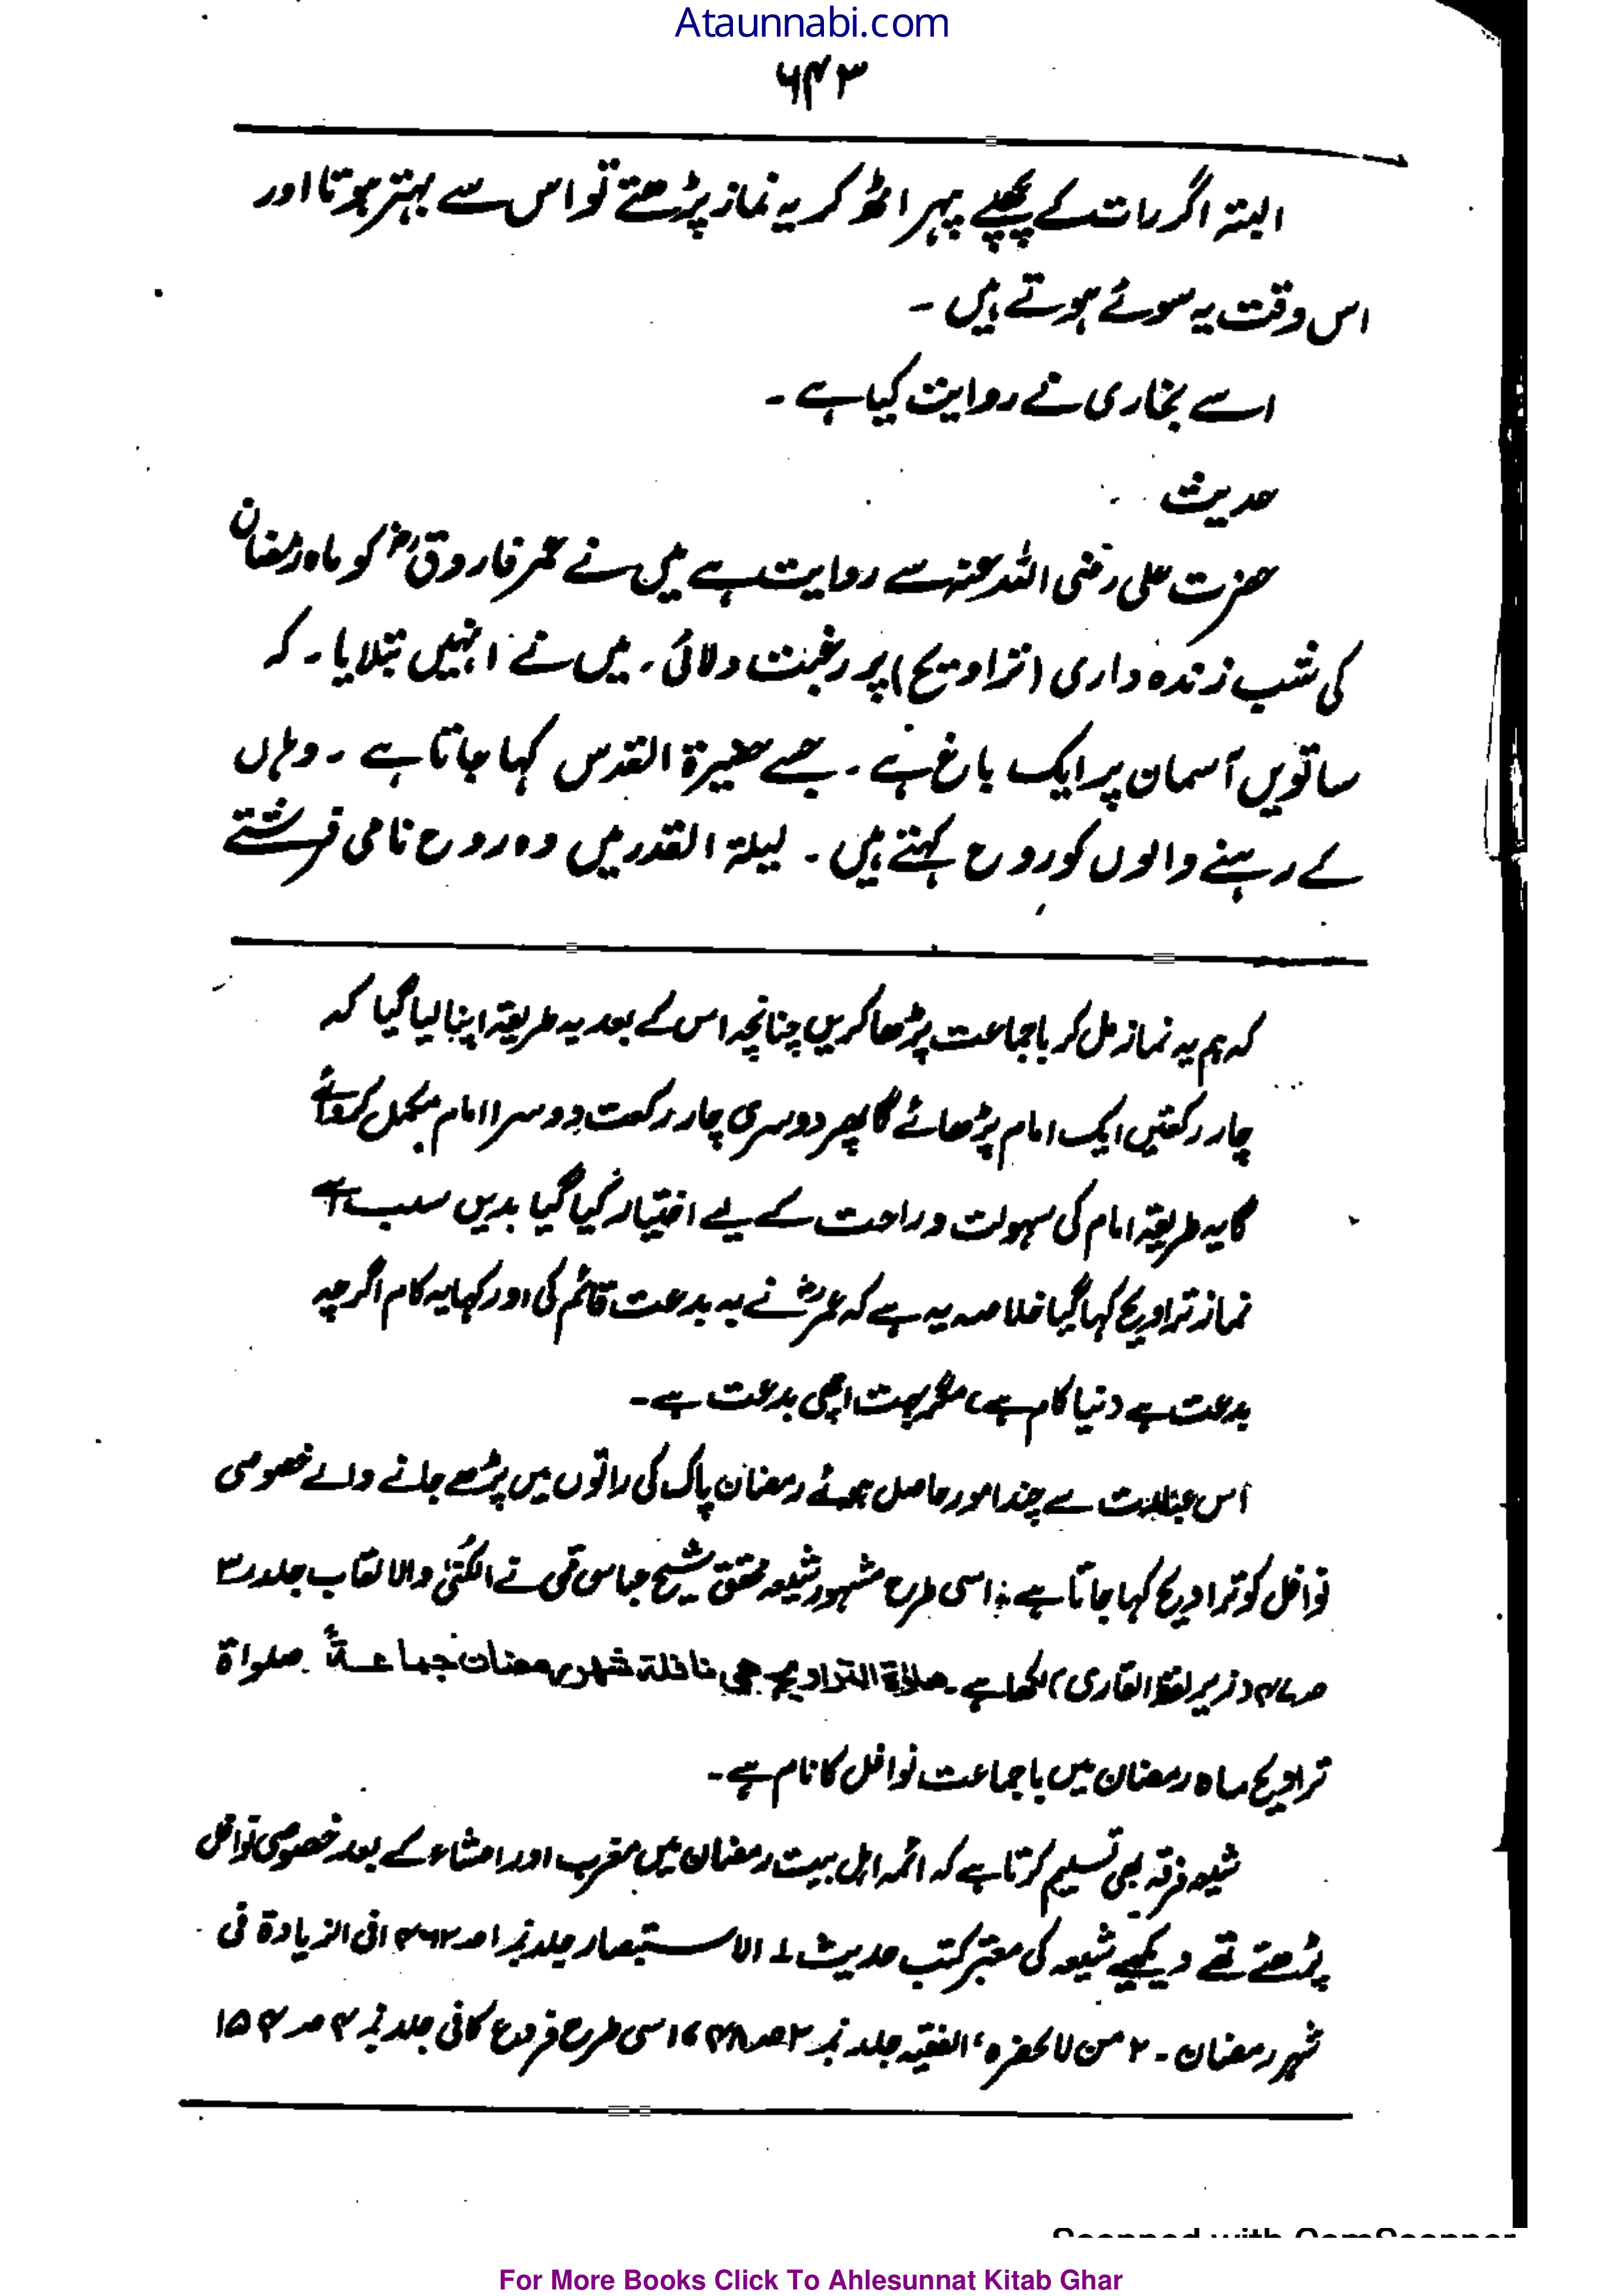 Ataunnabi.com
۶۴۳
البتہ اگر رات کے پچھلے پہر اٹھ کر یہ نماز پڑھتے تو اس سے بہتر ہوتا اور
اس وقت یہ سوئے ہوتے ہیں ۔
اسے بخاری نے روایت کیا ہے ۔
حدیث
حضرت علی رضی اللہ عنہ سے روایت ہے میں نے عمر فاروقؓ کو ماہ رمضان
کی شب زندہ داری (تراویح) پر رغبت دلائی ۔ میں نے انہیں بتلایا ۔ کہ
ساتویں آسمان پر ایک باغ ہے ۔ جسے حضیرۃ القدس کہا جاتا ہے ۔ وہاں
کے رہنے والوں کو روح کہتے ہیں ۔ لیلۃ القدر میں وہ روح نامی فرشتے
کہ ہم یہ نماز مل کر باجماعت پڑھا کریں چنانچہ اس کے بعد یہ طریقہ اپنا لیا گیا کہ
چار رکعتیں ایک امام پڑھائے گا پھر دوسری چار رکعت دوسرا امام مکمل کروائے
گا یہ طریقہ امام کی سہولت و راحت کے لیے اختیار کیا گیا بدیں سبب اسے
نماز تراویح کہا گیا خلاصہ یہ ہے کہ عمرؓ نے یہ بدعت قائم کی اور کہا یہ کام اگرچہ
بدعت ہے (نیا کام ہے) مگر بہت اچھی بدعت ہے ۔
اس عبارت سے چند امور حاصل ہوئے رمضان پاک کی راتوں میں پڑھے جانے والے خصوصی
نوافل کو تراویح کہا جاتا ہے ۔ اسی طرح مشہور شیعہ محقق شیخ عباس قمی نے الکنیٰ والالقاب جلد ۳
(زیر لفظ القاری) لکھا ہے ۔ صلاۃ التراویح ھی نافلۃ شھر رمضان جماعۃً ۔ صلواۃ
تراویح ماہ رمضان میں باجماعت نوافل کا نام ہے ۔
شیعہ فرقہ بھی تسلیم کرتا ہے کہ ائمہ اہل بیت رمضان میں مغرب اور عشاء کے بعد خصوصی نوافل
پڑھتے تھے دیکھیے شیعہ کی معتبر کتب حدیث ۱ الاستبصار جلد نمبر ۱ صـ ۴۶۲ فی الزیادۃ فی
شہر رمضان ۔ ۲ من لا یحضرہ الفقیہ جلد نمبر ۲ اسی طرح فروع کافی جلد نمبر ۴ صـ ۱۵۴
For More Books Click To Ahlesunnat Kitab Ghar